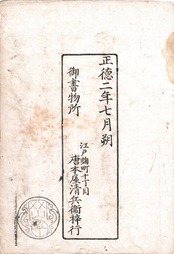 正德二年七月朔
御書物所
江戸麹町十丁目
唐本屋清兵衛梓行